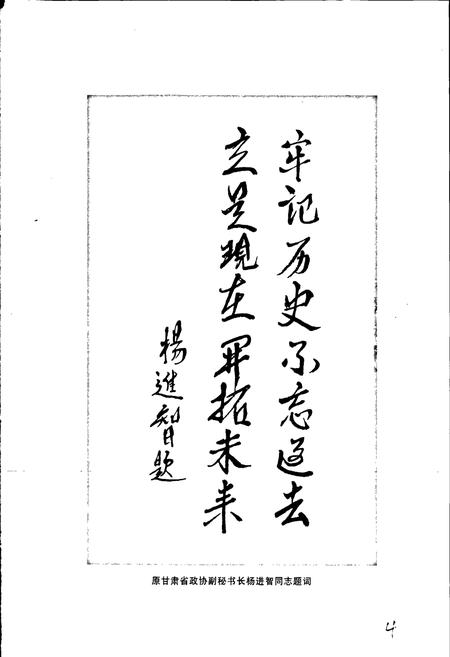 牢记历史不忘过去
立足现在開拓未来
楊進智题
原甘肃省政协副秘书长杨进智同志题词
4